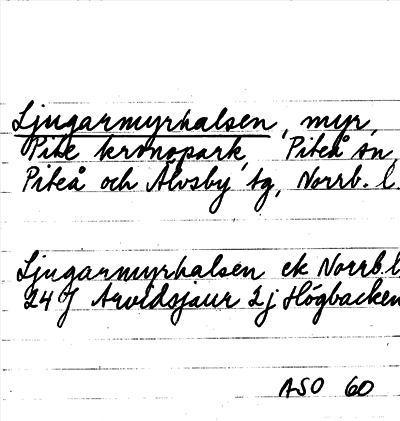 Ljugarmyrhalsen, myr,
Pite kronopark, Piteå sn,
Piteå och Älvsby tg, Norrb. l.
Ljugarmyrhalsen ek Norrb. l
24 J Arvidsjaur 2j Högbacken
ASO 60